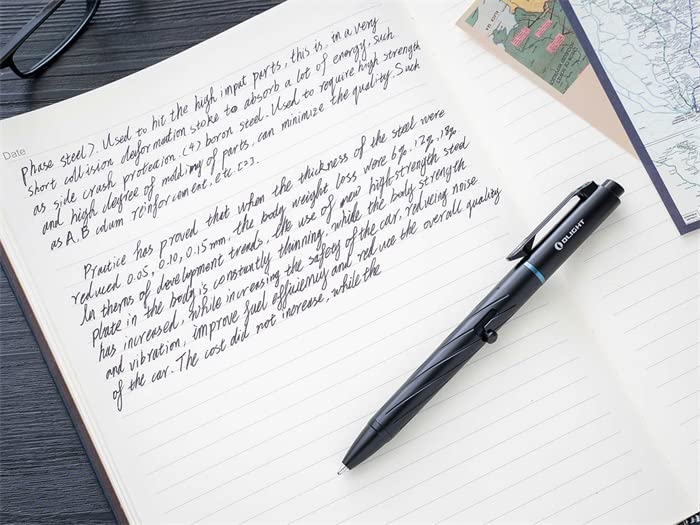 Date
phase steel). Used to hit the high input parts, this is, in a very
short collision deformation stoke to absorb a lot of energy, such
as side crash protection. (4) boron steel. Used to require high strength
and high degree of molding of parts, can minimize the quality. Such
as A, B colum reinforcement, etc. [2].
Practice has proved that when the thickness of the steel were
reduced 0.05, 0.10, 0.15mm, the body weight loss were 6%, 12%, 18%.
In therms of development trends, the use of new high-strength steel
plate in the body is constantly thinning, while the body strength
has increased, while increasing the safety of the car, reducing noise
and vibration, improve fuel efficiency and reduce the overall quality
of the car. The cost did not increase, while the
OLIGHT